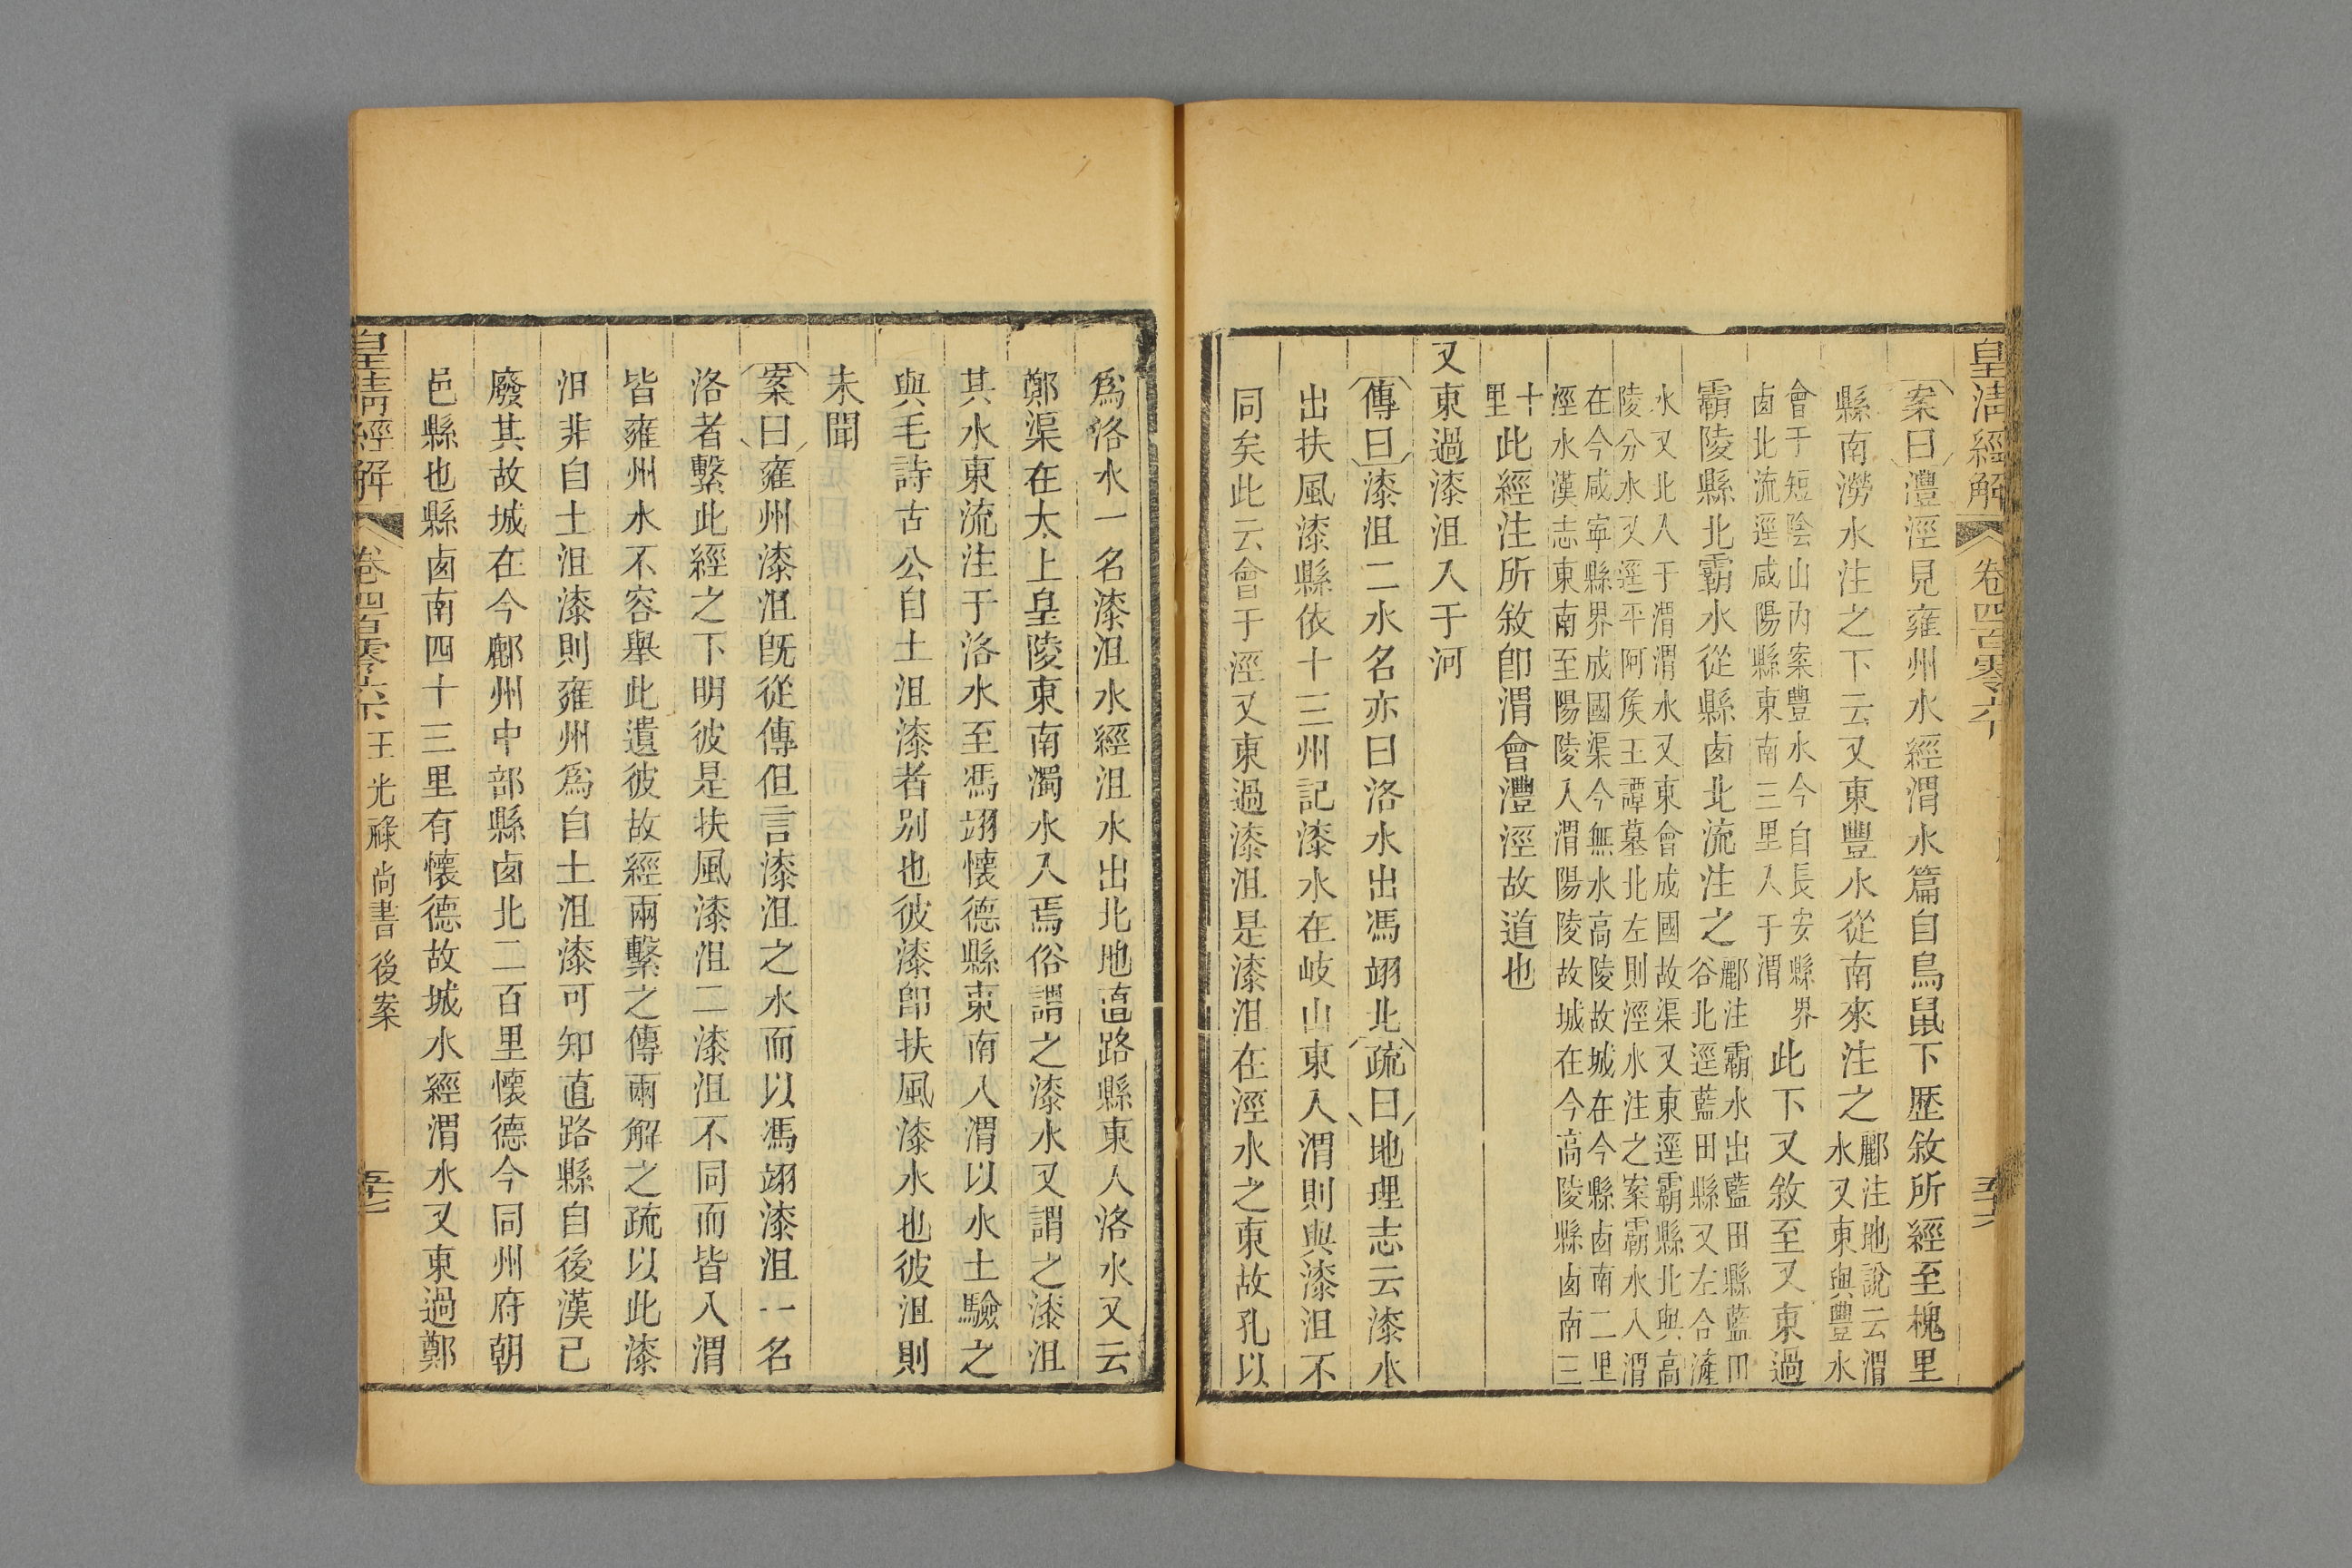 皇清經解 卷四百零六下 五十六
案曰灃涇見雍州水經渭水篇自鳥鼠下歷敘所經至槐里
縣南澇水注之下云又東豐水從南來注之酈注地說云渭水又東與豐水
會于短陰山內案豐水今自長安縣界鹵北流逕咸陽縣東南三里入于渭此下又敘至又東過
霸陵縣北霸水從縣鹵北流注之酈注霸水出藍田縣藍田谷北逕藍田縣又左合滻
水又北入于渭渭水又東會成國故渠又東逕霸縣北與高陵分水又逕平阿矦王譚墓北左則涇水注之案霸水入渭
在今咸寧縣界成國渠今無水高陵故城在今縣鹵南二里涇水漢志東南至陽陵入渭陽陵故城在今高陵縣鹵南三
十里此經注所敘卽渭會灃涇故道也
又東過漆沮入于河
傳曰漆沮二水名亦曰洛水出馮翊北疏曰地理志云漆水
出扶風漆縣依十三州記漆水在岐山東入渭則與漆沮不
同矣此云會于涇又東過漆沮是漆沮在涇水之東故孔以
爲洛水一名漆沮水經沮水出北地直路縣東入洛水又云
鄭渠在太上皇陵東南濁水入焉俗謂之漆水又謂之漆沮
其水東流注于洛水至馮翊懷德縣東南入渭以水土驗之
與毛詩古公自土沮漆者別也彼漆卽扶風漆水也彼沮則
未聞
案曰雍州漆沮旣從傳但言漆沮之水而以馮翊漆沮一名
洛者繫此經之下明彼是扶風漆沮二漆沮不同而皆入渭
皆雍州水不容舉此遺彼故經兩繫之傳兩解之疏以此漆
沮非自土沮漆則雍州爲自土沮漆可知直路縣自後漢已
廢其故城在今鄜州中部縣鹵北二百里懷德今同州府朝
邑縣也縣鹵南四十三里有懷德故城水經渭水又東過鄭
皇清經解 卷四百零六下 王光祿尚書後案 五十七